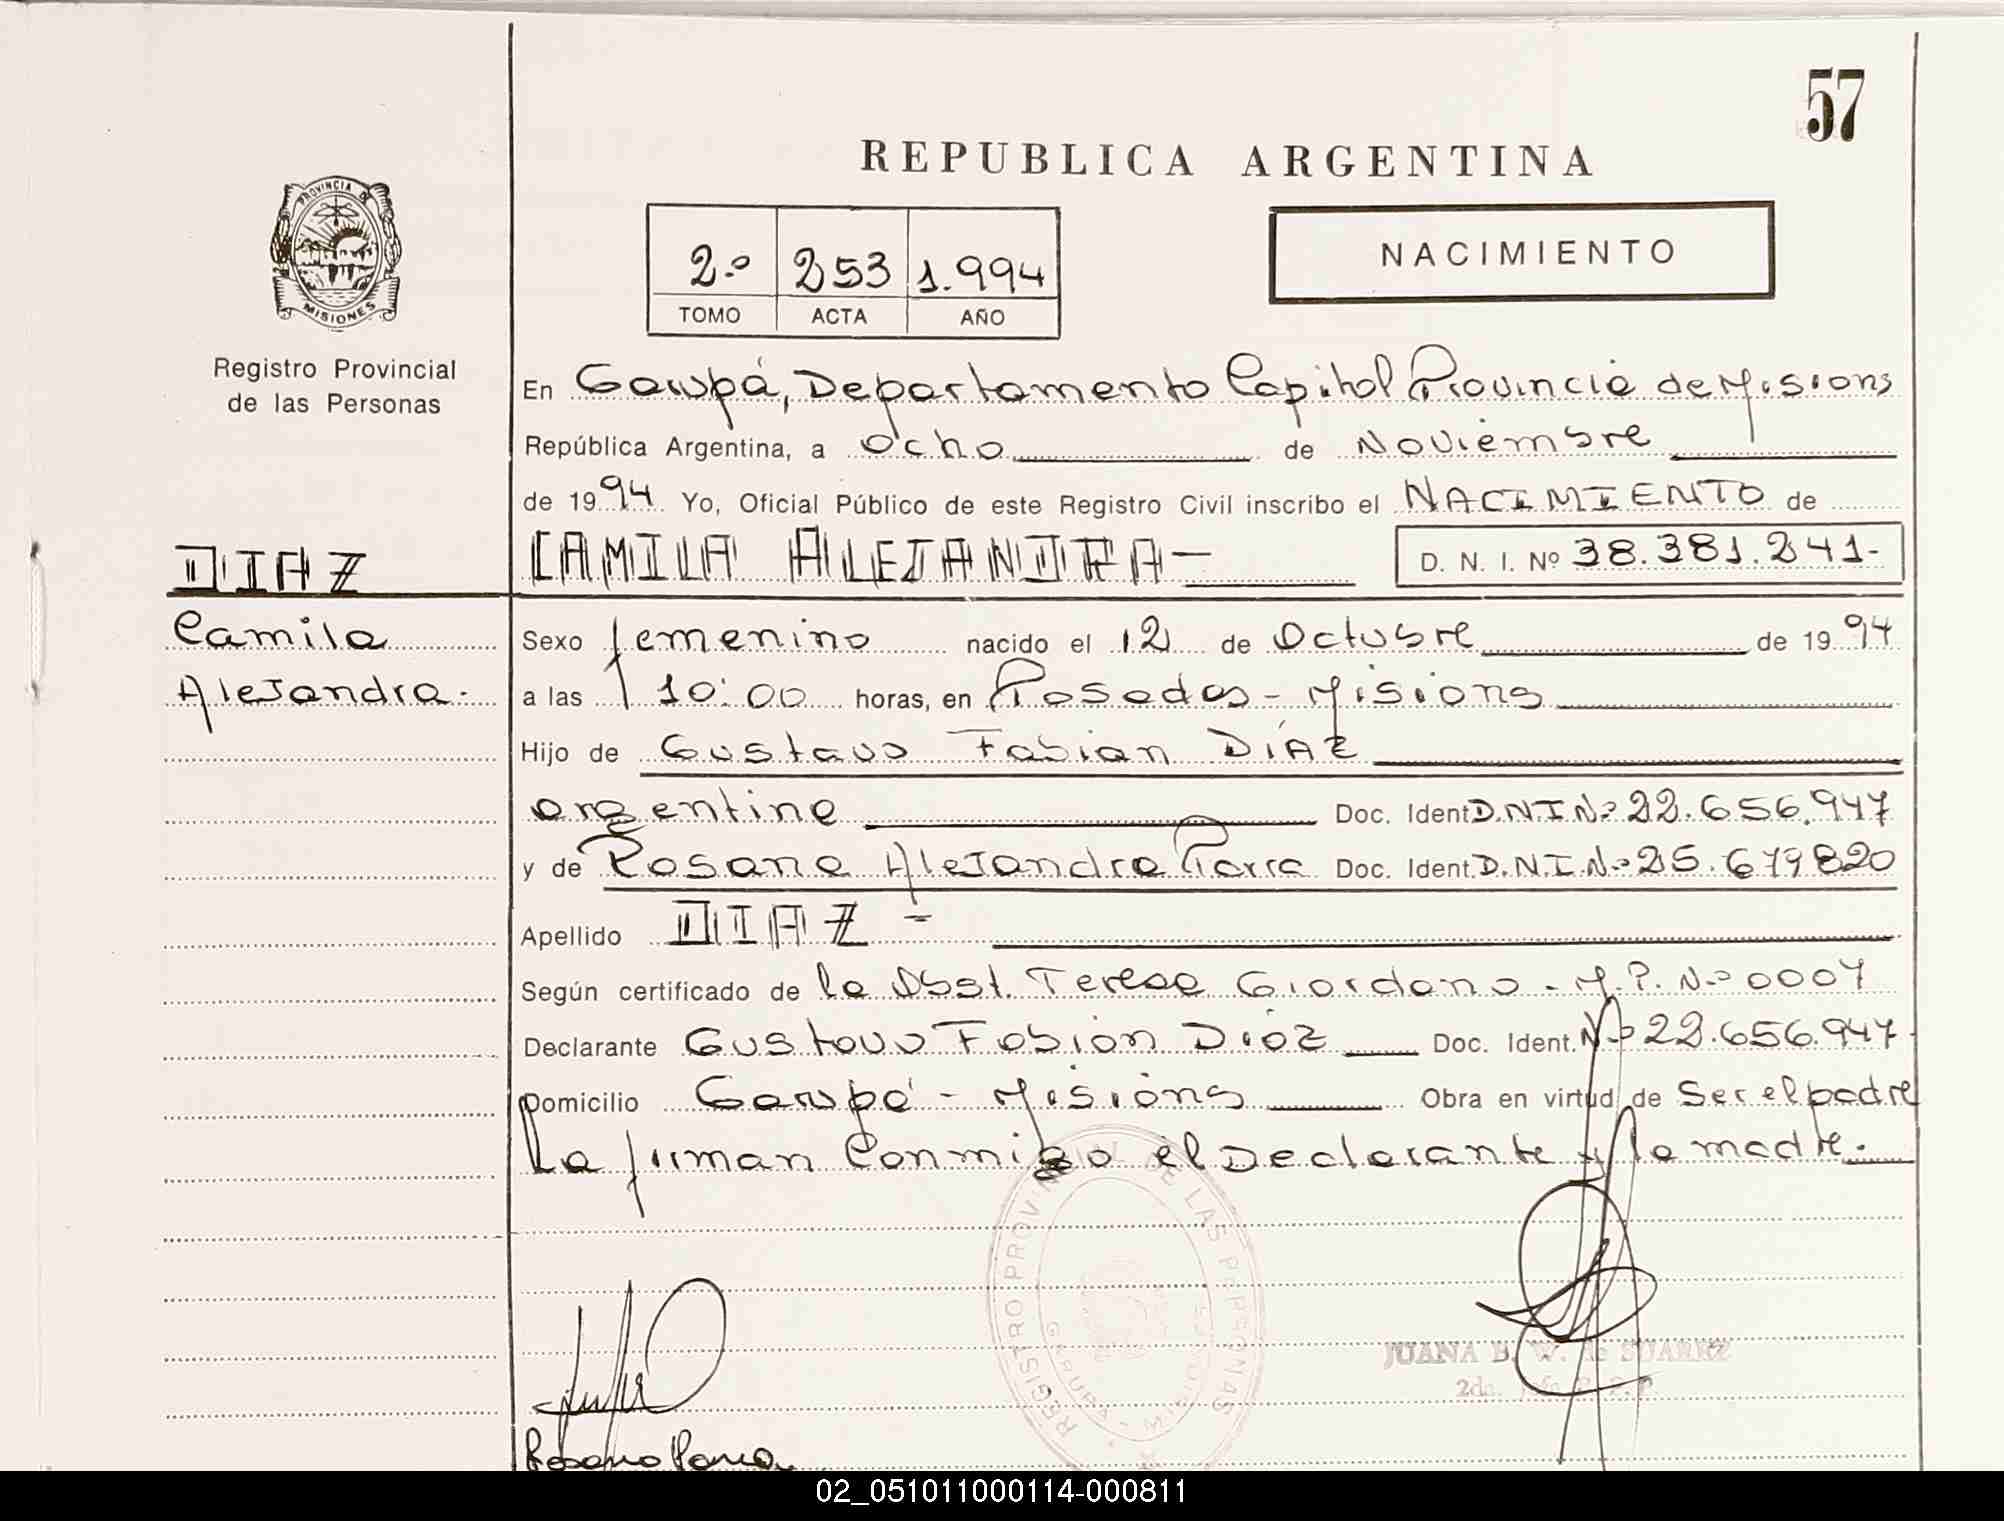 57
REPUBLICA ARGENTINA
PROVINCIA DE
MISIONES
Registro Provincial
de las Personas
2.º 253 1.994
TOMO ACTA AÑO
NACIMIENTO
En Garupá, Departamento Capital Provincia de Misions
República Argentina, a ocho de Noviembre
de 1994 Yo, Oficial Público de este Registro Civil inscribo el NACIMIENTO de
DIAZ
CAMILA ALEJANDRA-
D. N. I. Nº 38.381.241-
Camila
Alejandra.
Sexo femenino nacido el 12 de Octubre de 1994
a las 10:00 horas, en Posadas - Misions
Hijo de Gustavo Fabian DÍAZ
argentina Doc. Ident D.N.I Nº 22.656.947
y de Rosana Alejandra Parra Doc. Ident. D.N.I. Nº 25.679820
Apellido DIAZ -
Según certificado de la Obst. Teresa Giordano - M.P. Nº 0007
Declarante Gustavo Fabián Díaz Doc. Ident. Nº 22.656.947.
Domicilio Garupá - Misións Obra en virtud de Ser el padre
La firman Conmigo el Declarante y la madre.
REGISTRO PROVINCIAL DE LAS PERSONAS
GARUPA - MISIONES
JUANA B. W. de SUAREZ
Rosana Parra
02_051011000114-000811